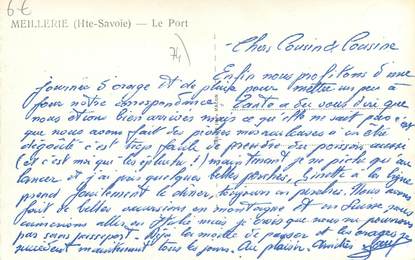 6€
MEILLERIE (Hte-Savoie) — Le Port
74
Chers Cousin & Cousine
Enfin nous profitons d'une
journée d'orage et de pluie pour mettre un peu à
jour notre correspondance. a du vous dire que
nous étions bien arrivés mais ce qu'il ne sait pas c'est
que nous avons fait des pêches miraculeuses à en être
dégoûté c'est trop facile de prendre du poisson aussi
(et c'est moi qui les épluche!) maintenant je ne pêche qu'au
lancer et j'ai pris quelques belles perches. Ginette à la ligne
prend facilement le dîner, toujours en perches. Nous avons
fait de belles excursions en montagne et en Suisse nous
aimerions aller en Italie mais je crois que nous ne pourrons
pas sans passeport. Déjà la moitié de passer et les orages se
succèdent maintenant tous les jours. Au plaisir. Amitiés